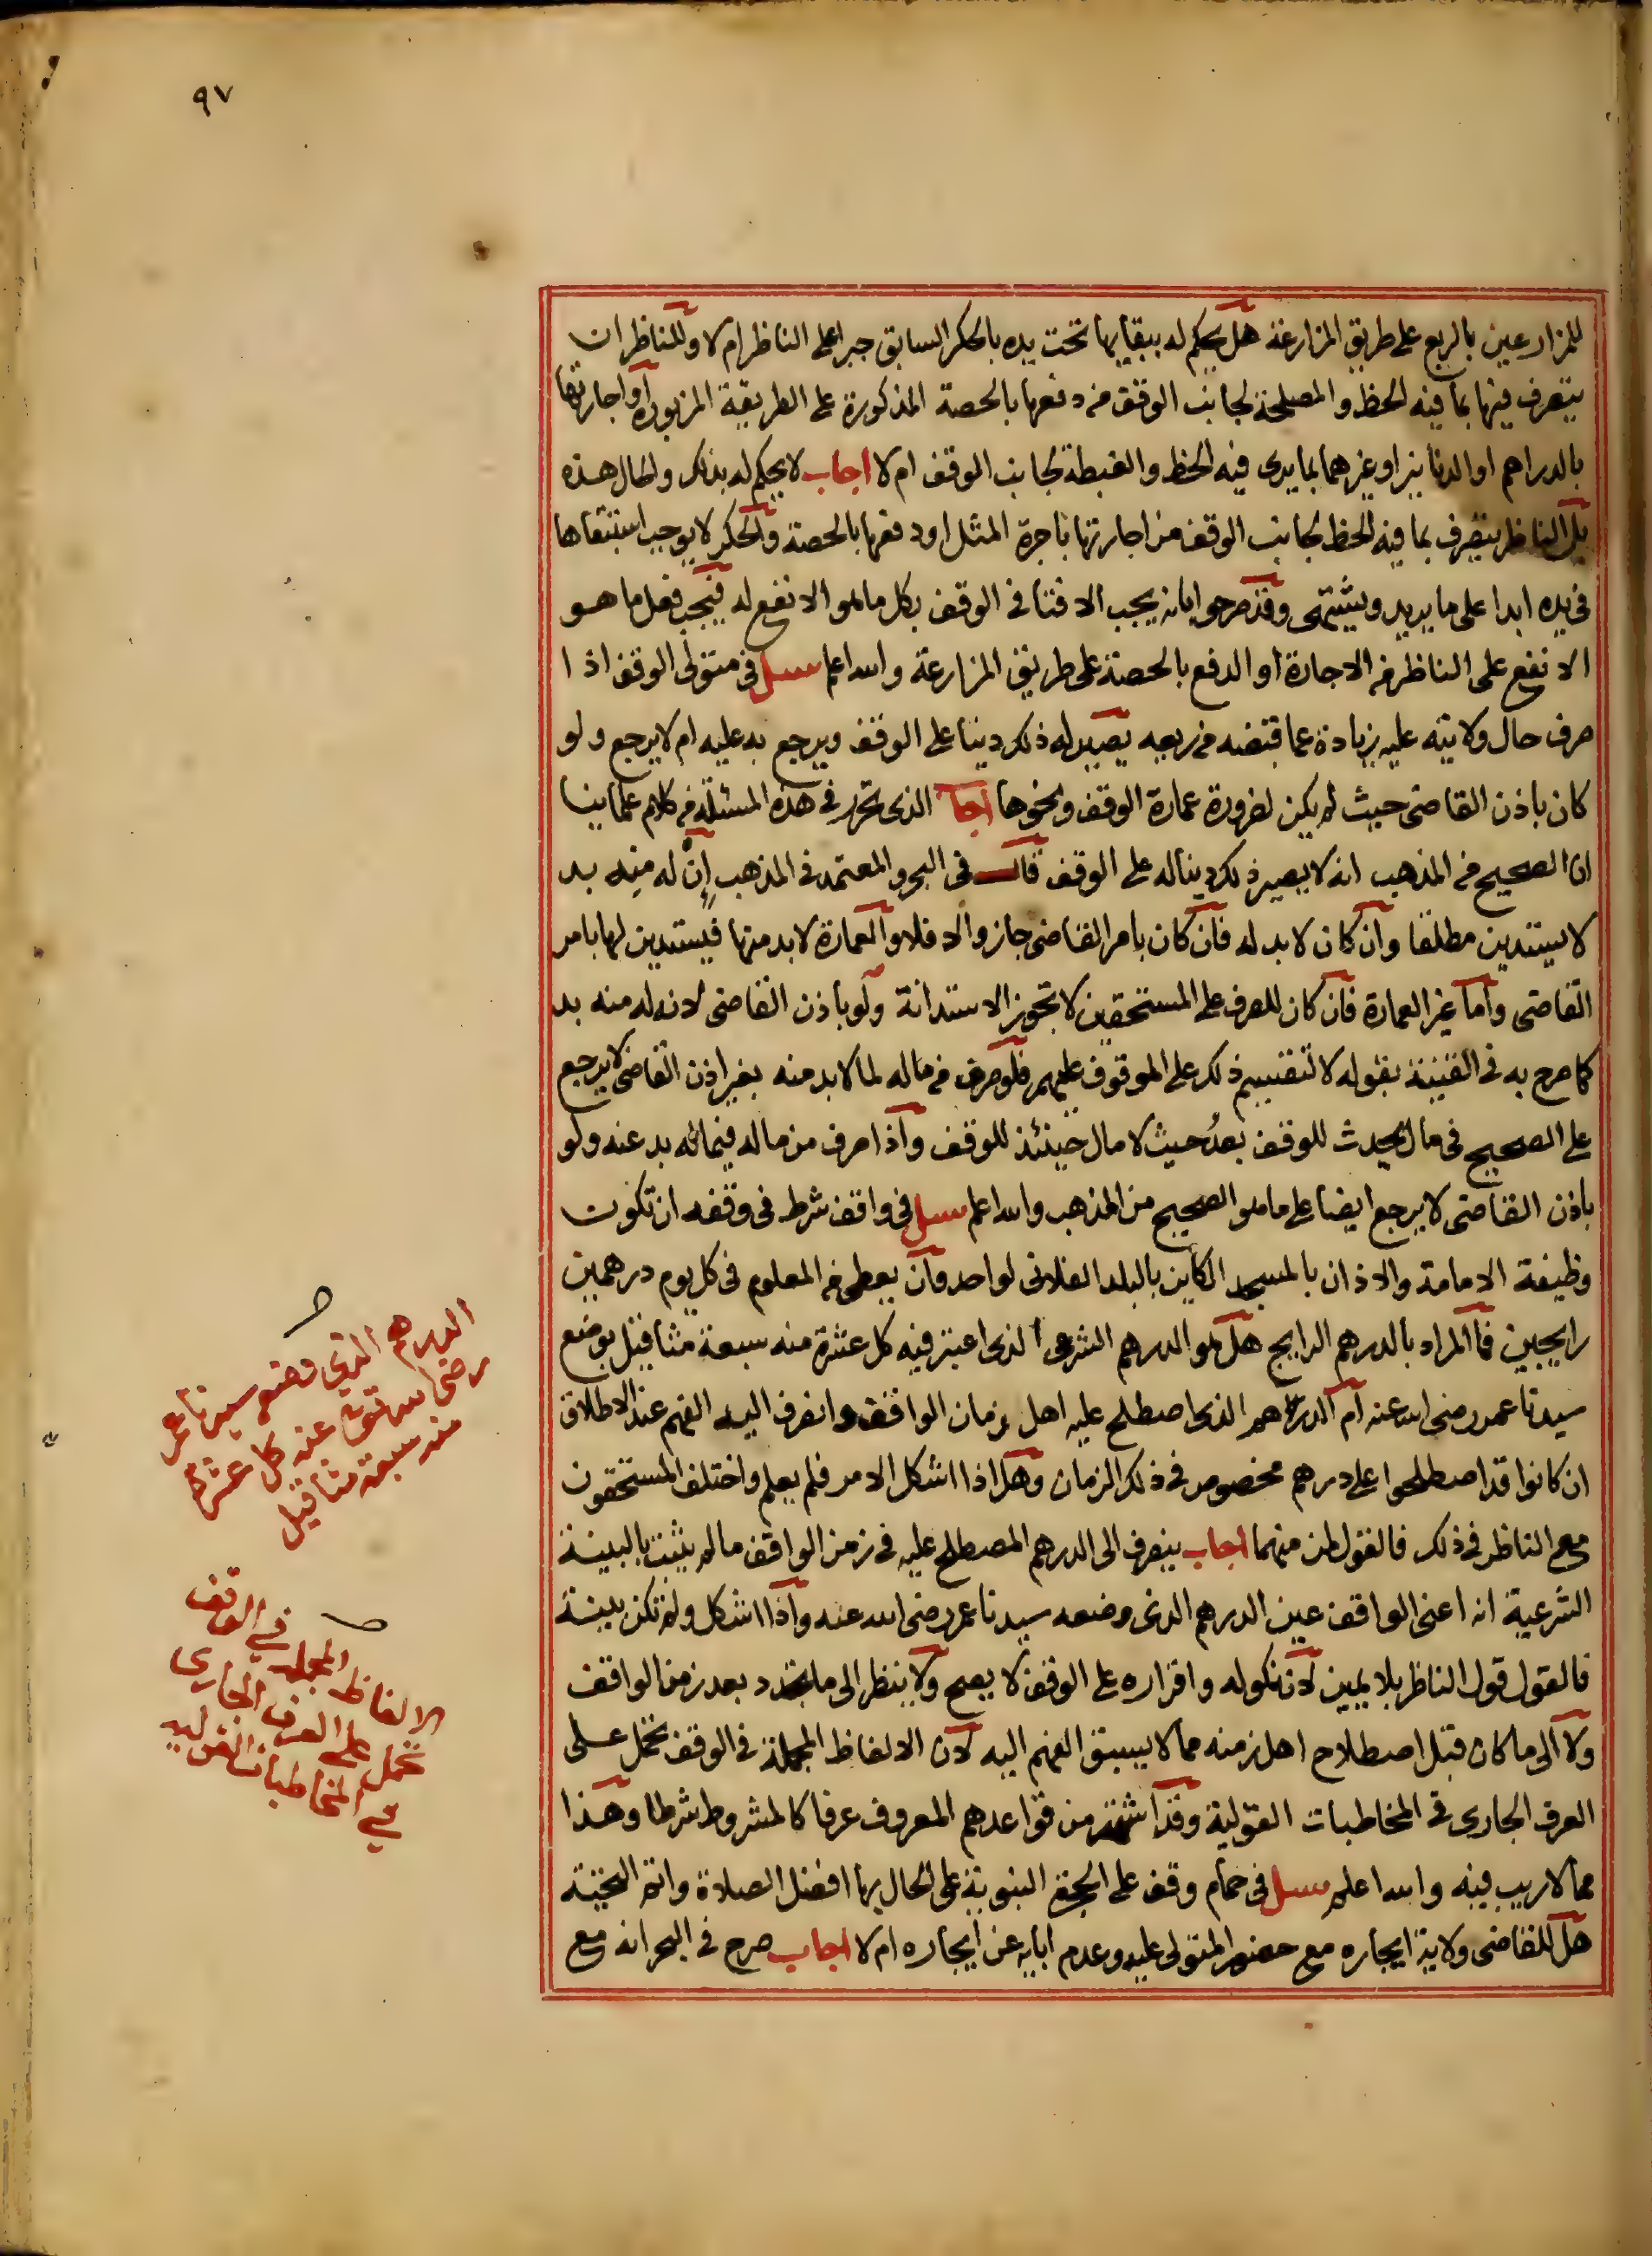 ٩٧
للمزارعين بالربع على طريق المزارعة هل يحكم له ببقايها تحت يده بالحكر السابق جبرا على الناظر ام لا وللناظر ان
يتصرف فيها بما فيه الحظ والمصلحة لجانب الوقف من دفعها بالحصة المذكورة على الطريقة المزبورة او اجارتها
بالدراهم او الدنانير او غيرهما بما يرى فيه الحظ والغبطة لجانب الوقف ام لا اجاب لا يحكم له بذلك والحال هذه
بل الناظر يتصرف بما فيه الحظ لجانب الوقف من اجارتها باجرة المثل او دفعها بالحصة والحكر لا يوجب استبقاها
في يده ابدا على ما يريد ويشتهي وقد صرحوا بانه يجب الافتا في الوقف بكل ما هو الانفع له فيجب فعل ما هو
الانفع على الناظر من الاجارة او الدفع بالحصة على طريق المزارعة والله اعلم سيل في متولى الوقف اذا
صرف حال ولايته عليه زيادة عما قبضه من ريعه يصير له ذلك دينا على الوقف ويرجع به عليه ام لا يرجع ولو
كان باذن القاضى حيث لم يكن لضرورة عمارة الوقف ونحوها اجاب الذى تحرر في هذه المسئلة من كلام علماينا
ان الصحيح من المذهب انه لا يصير ذلك دينا له على الوقف قال في البحر والمعتمد في المذهب ان له منه بد
لا يستدين مطلقا وان كان لا بد له فان كان بامر القاضى جاز والا فلا والعمارة لا بد منها فيستدين لها بامر
القاضى واما غير العمارة فان كان للصرف على المستحقين لا تجوز الاستدانة ولو باذن القاضى لانه له منه بد
كما صرح به في القنية بقوله لا تنقسم ذلك على الموقوف عليهم فلو صرف من ماله لما لا بد منه بغير اذن القاضى لا يرجع
على الصحيح في مال يحدث للوقف بعد حيث لا مال حينئذ للوقف واذا صرف من ماله فيما له بد عنه ولو
باذن القاضى لا يرجع ايضا على ما هو الصحيح من المذهب والله اعلم سيل في واقف شرط في وقفه ان تكون
وظيفة الامامة والاذان بالمسجد الكاين بالبلد الفلانى لواحد وان يعطى من المعلوم في كل يوم درهمين
رايجين فما المراد بالدرهم الرايج هل هو الدرهم الشرعى الذى اعتبر فيه كل عشرة منه سبعة مثاقيل بوضع
سيدنا عمر رضى الله عنه ام الدرهم الذى اصطلح عليه اهل زمان الواقف وانصرف اليه الفهم عند الاطلاق
ان كانوا قد اصطلحوا على درهم مخصوص في ذلك الزمان وهل اذا اشكل الامر فلم يعلم واختلف المستحقون
مع الناظر في ذلك فالقول لمن منهما اجاب ينصرف الى الدرهم المصطلح عليه في زمن الواقف ما لم يثبت بالبينة
الشرعية انه اعنى الواقف عين الدرهم الذى وضعه سيدنا عمر رضى الله عنه واذا اشكل ولم تكن بينة
فالقول قول الناظر بلا يمين لان نكوله واقراره على الوقف لا يصح ولا ينظر الى ما يتجدد بعد زمن الواقف
ولا الى ما كان قبل اصطلاح اهل زمنه مما لا يسبق الفهم اليه لان الالفاظ المجملة في الوقف تحمل على
العرف الجارى في المخاطبات القولية وقد اشتهر من قواعدهم المعروف عرفا كالمشروط شرطا وهذا
مما لا ريب فيه والله اعلم سيل في حمام وقف على الحجرة النبوية على الحال بها افضل الصلاة واتم التحية
هل للقاضى ولاية ايجاره مع حضور المتولى عليه وعدم ابايه عن ايجاره ام لا اجاب صرح في البحر انه مع
الدرهم الذي وضعه سيدنا عمر
رضى الله تعالى عنه كل عشرة
منه سبعة مثاقيل
الالفاظ المجملة في الوقف
تحمل على العرف الجاري
في المخاطبات القوليه